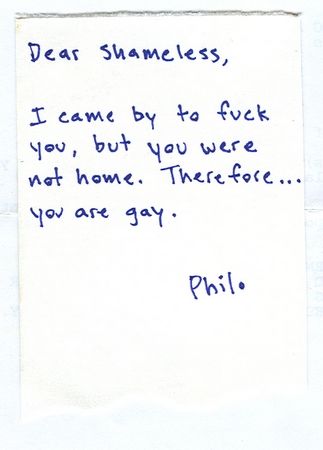 Dear Shameless,
I came by to fuck
you, but you were
not home. Therefore...
you are gay.
Phil.